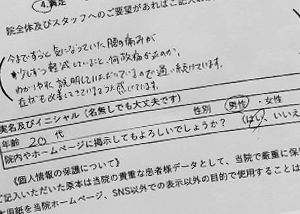 ④.満足
院全体及びスタッフへのご要望があればご記入お
今までずっと気になっていた腰の痛みが
少しずつ軽減していること、何故痛かったのか、
わかりやすく説明していただいているので通い続けています。
実名及びイニシャル(名無しでも大丈夫です)
年齢 20 代 性別 男性・女性
院内やホームページに掲示してもよろしいでしょうか? はい、いいえ
《個人情報の保護について》
ご記入いただいた原本は当院の貴重な患者様データとして、当院で厳重に保
用紙を当院ホームページ、SNS以外での表示以外の目的で使用することは